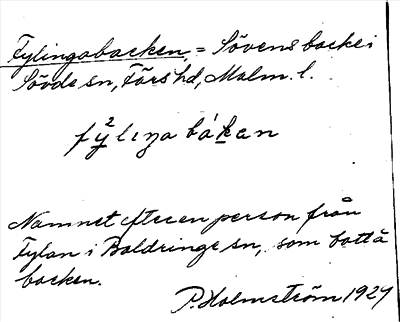 Fylingabacken, = Sövens backe i
Sövde sn, Färs hd, Malm. l.
fy̲²lıŋa bák̲an
Namnet efter en person från
Fylan i Baldringe sn, som bott å
backen.
P. Holmström 1924